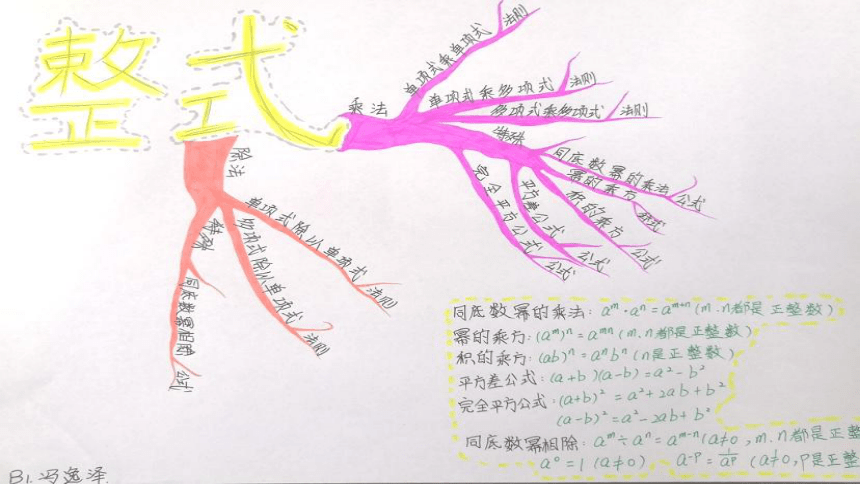 整式
乘法
单项式乘单项式
法则
单项式乘多项式
法则
多项式乘多项式
法则
特殊
同底数幂的乘法
公式
幂的乘方
公式
积的乘方
公式
平方差公式
公式
完全平方公式
公式
除法
单项式除以单项式
法则
多项式除以单项式
法则
特殊
同底数幂相除
公式
同底数幂的乘法: aᵐ·aⁿ=aᵐ⁺ⁿ(m.n都是正整数)
幂的乘方:(aᵐ)ⁿ=aᵐⁿ(m.n都是正整数)
积的乘方:(ab)ⁿ=aⁿbⁿ(n是正整数)
平方差公式:(a+b)(a-b)=a²-b²
完全平方公式:(a+b)²=a²+2ab+b²
(a-b)²=a²-2ab+b²
同底数幂相除: aᵐ÷aⁿ=aᵐ⁻ⁿ(a≠0,m.n都是正整
a⁰=1(a≠0) a⁻ᵖ=1/aᵖ (a≠0,p是正整
B1.冯逸泽.